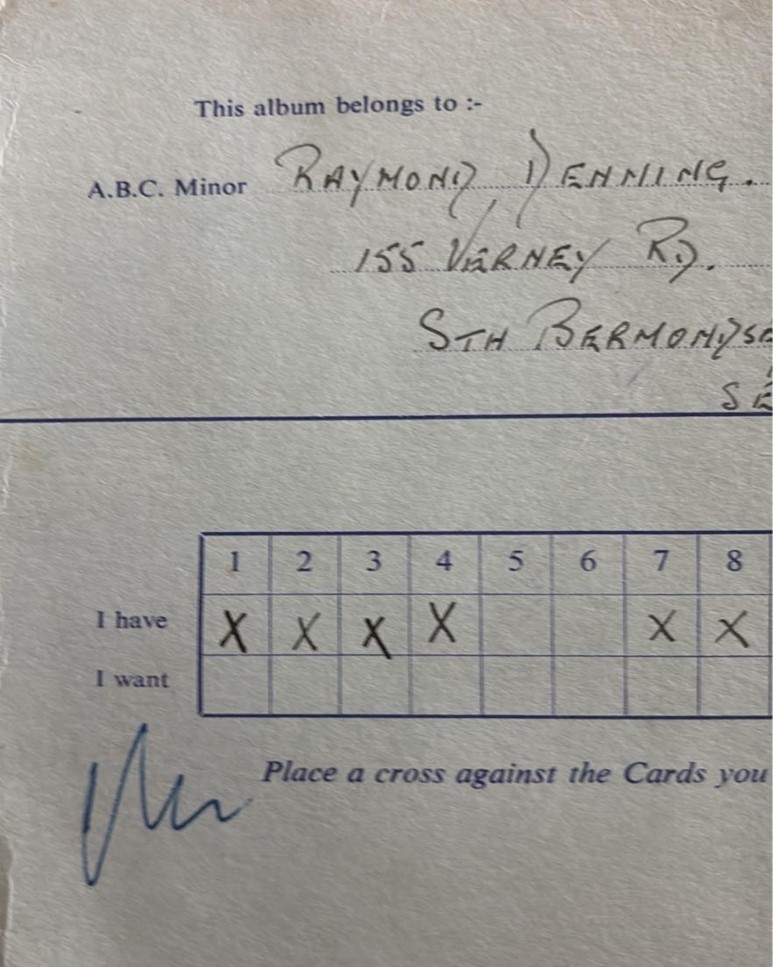 This album belongs to :-
A.B.C. Minor RAYMOND DENNING.
155 VERNEY RD.
STH BERMONDSE
SE
1 2 3 4 5 6 7 8
I have X X X X X X
I want
Place a cross against the Cards you